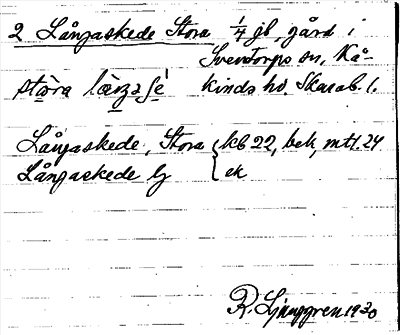 2 Långaskede Stora 1/4 jb, gård i
Sventorps sn, Kå-
kinds hd. Skarab. l.
Långaskede, Stora { kb 22, bek, mtl. 24
Långaskede by { ek
R. Ljunggren 1930